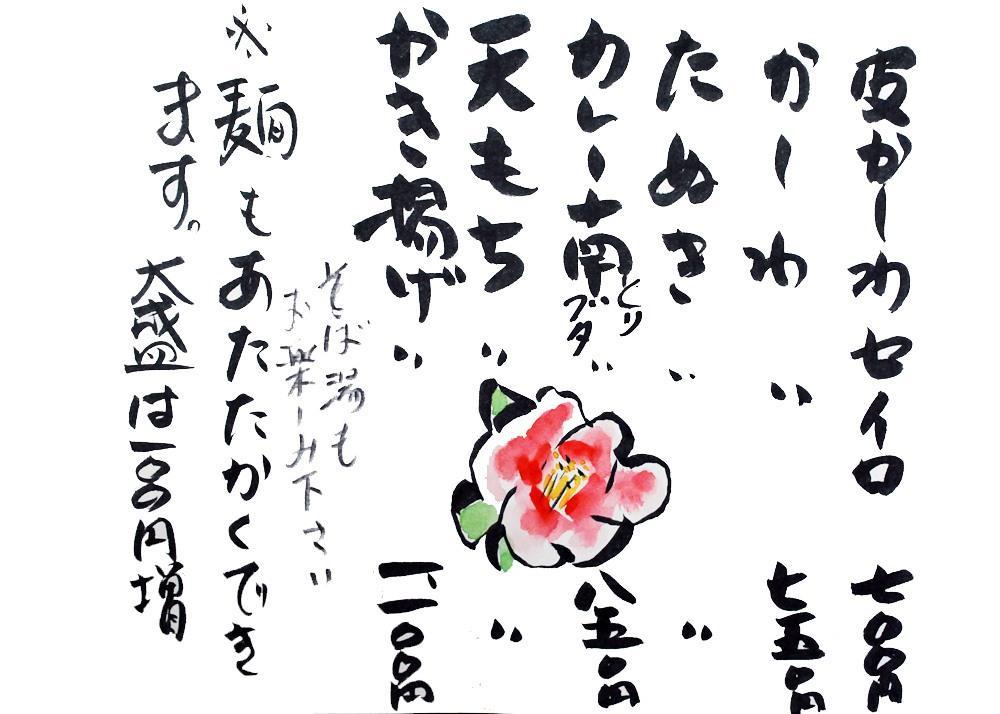 皮かーわセイロ 七〇〇円
かーわ 〃 七五〇円
たぬき 〃 〃
カレー南 とりブタ 〃 八五〇円
天もち 〃 〃
かき揚げ 〃 一、一〇〇円
そば湯も
お楽しみ下さい
※麺もあたたかくでき
ます。大盛は一〇〇円増